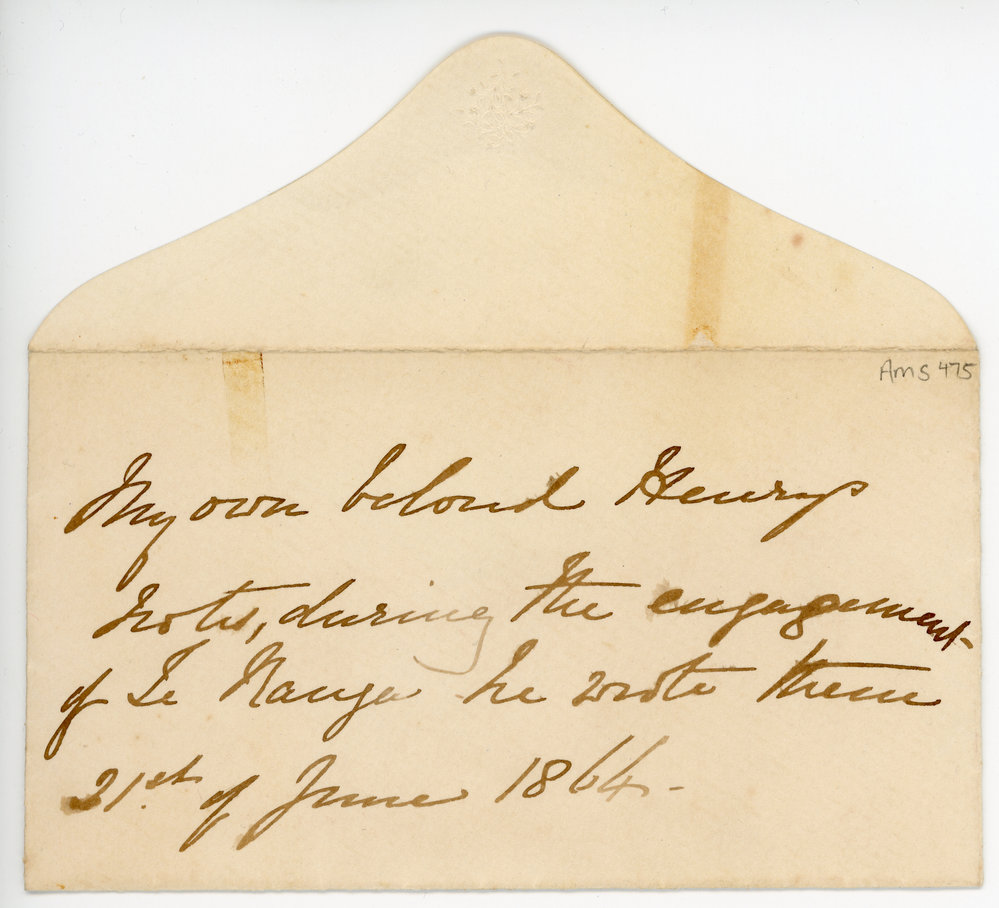 Ams 475
My own beloved Henrys
Notes, during the engagement
of Te Ranga he wrote them
21st of June 1864.-